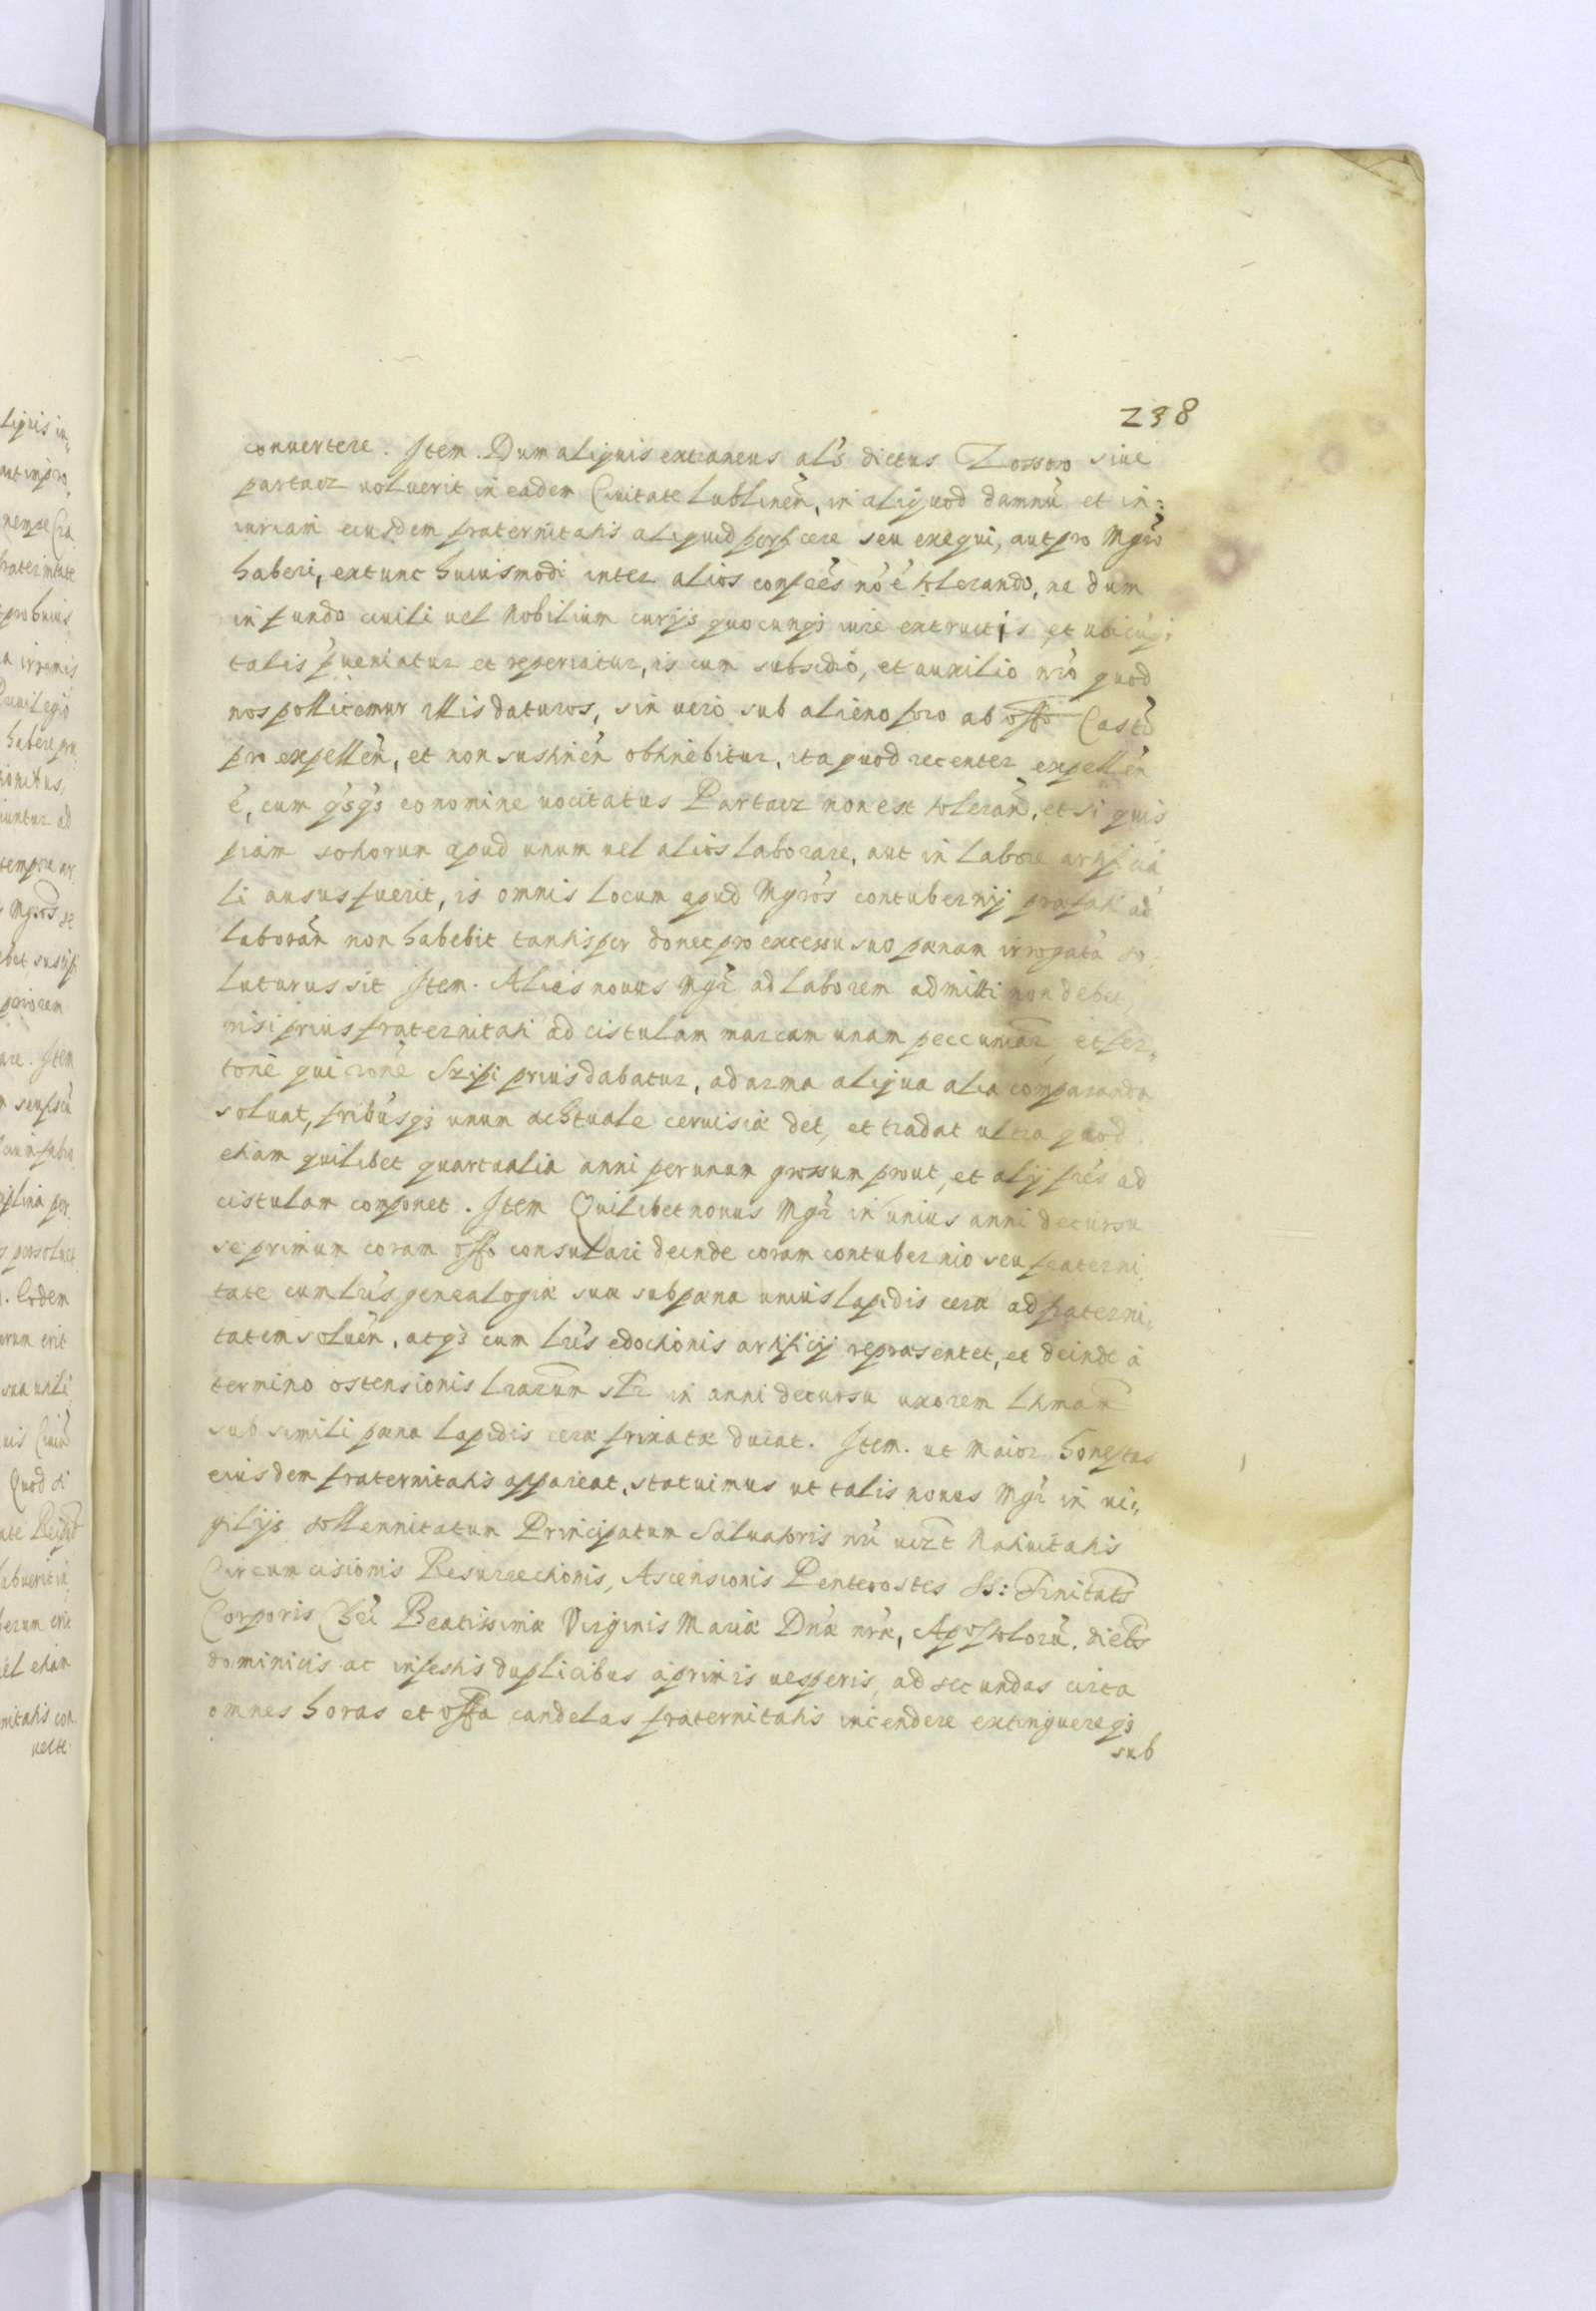 238
conuertere. Item. Dum aliquis extraneus al's dictus Zossoo siue
partacz uoluerit in eadem Ciuitate Lublinen̄, in aliquod damnū et in:
iuriam eiusdem fraternitatis aliquid perficere seu exequi, aut pro Mgrō
haberi, extunc huiusmodi inter alios confrēs nō ē tolerando, ne dum
in fundo ciuili uel Nobilium curijs quocunq; iure extructis et ubicūq;
talis pueniatur et reperiatur, is cum subsidio, et auxilio nrō quod
nos pollicemur illis daturos, sin uero sub alieno foro ab offo Castō
pro expellēn, et non sustinēn obtinebitur, ita quod recenter expellēn
ē, cum qsqs eo nomine uocitatus Partacz non est tolerān̄, et si quis
piam sotiorum apud unum uel alios laborare, aut in labore artificia
li ausus fuerit, is omnis locum apud Mgrōs contubernij præfati ad
laborān̄ non habebit tantisper donec pro excessu suo pænam irrogatā so,
luturus sit Item. Alias nouus Mgr̄ ad laborem admitti non debet,
nisi prius fraternitati ad cistulam marcam unam peccuniar̄, et fer,
tonē qui rōnē Szipi prius dabatur, ad arma aliqua alia comparanda
soluat, fribūsq; unum achtuale ceruisiæ det, et tradat ultra quod
etiam quilibet quartualia anni per unum grossum prout, et alij frēs ad
cistulam componet. Item Quilibet nouus Mgr̄ in unius anni decursu
se primum coram offo consulari deinde coram contubernio seu fraterni
tate cum lrīs genealogiæ suæ sub pæna unius lapidis ceræ ad fraterni,
tatem soluēn, atq; cum lrīs edoctionis artificij repræsentet, et deinde à
termino ostensionis lrarum̄ sl̄r in anni decursu uxorem Ltmam̄
sub simili pæna lapidis ceræ frixatæ ducat. Item. ut Maior honestas
eiusdem fraternitatis appareat, statuimus ut talis nouus Mgr̄ in ui,
gilijs sollennitatum Principatum Saluatoris nrī uizt Natiuitatis
Circumcisionis Resurrectionis, Ascensionis Pentecostes SS: Trinitatis
Corporis Chrī Beatissimæ Virginis Mariæ Dnæ nrǣ, Apostolorū, diebs
dominicis ac in festis duplicibus à primis uesperis, ad secundas circa
omnes horas et offa candelas fraternitatis incendere extinguereq;
sub